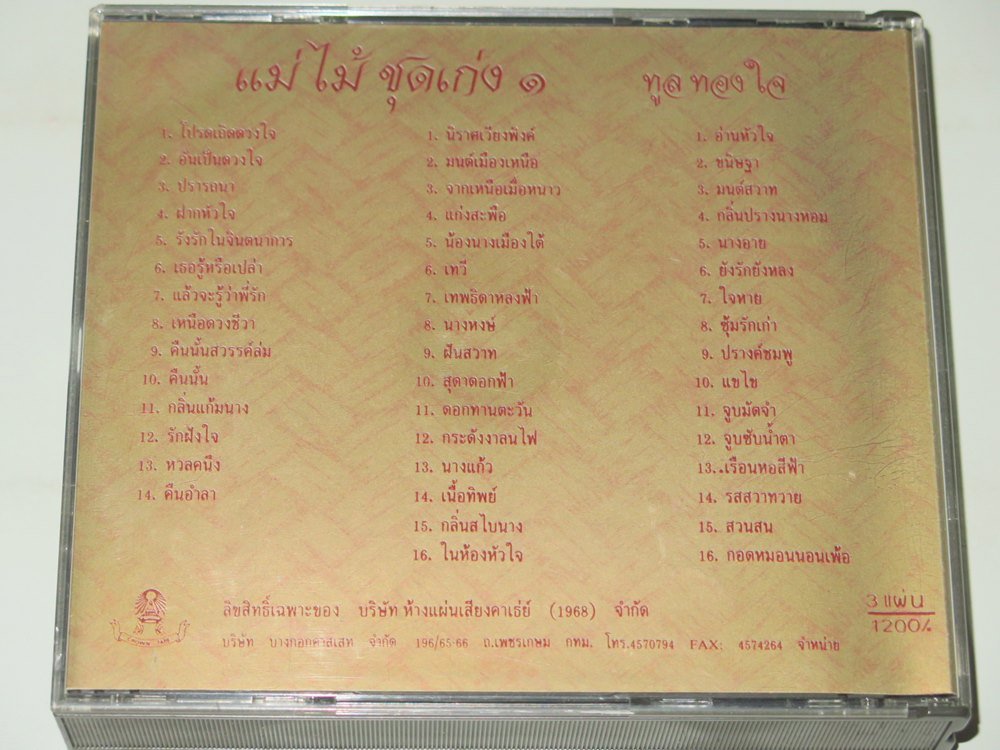 แม่ไม้ ชุดเก่ง ๑
ทูล ทองใจ
1. โปรดเถิดดวงใจ
2. อันเป็นดวงใจ
3. ปรารถนา
4. ฝากหัวใจ
5. รังรักในจินตนาการ
6. เธอรู้หรือเปล่า
7. แล้วจะรู้ว่าพี่รัก
8. เหนือดวงชีวา
9. คืนนั้นสวรรค์ล่ม
10. คืนนั้น
11. กลิ่นแก้มนาง
12. รักฝังใจ
13. หวลคนึง
14. คืนอำลา
1. นิราศเวียงพิงค์
2. มนต์เมืองเหนือ
3. จากเหนือเมื่อหนาว
4. แก่งสะพือ
5. น้องนางเมืองใต้
6. เทวี
7. เทพธิดาหลงฟ้า
8. นางหงษ์
9. ฝันสวาท
10. สุดาดอกฟ้า
11. ดอกทานตะวัน
12. กระดังงาลนไฟ
13. นางแก้ว
14. เนื้อทิพย์
15. กลิ่นสไบนาง
16. ในห้องหัวใจ
1. อ่านหัวใจ
2. ขนิษฐา
3. มนต์สวาท
4. กลิ่นปรางนางหอม
5. นางอาย
6. ยังรักยังหลง
7. ใจหาย
8. ซุ้มรักเก่า
9. ปรางค์ชมพู
10. แขไข
11. จูบมัดจำ
12. จูบซับน้ำตา
13..เรือนหอสีฟ้า
14. รสสวาทวาย
15. สวนสน
16. กอดหมอนนอนเพ้อ
ลิขสิทธิ์เฉพาะของ บริษัท ห้างแผ่นเสียงคาเธ่ย์ (1968) จำกัด
บริษัท บางกอกคาสเสท จำกัด 196/65-66 ถ.เพชรเกษม กทม. โทร.4570794 FAX: 4574264 จำหน่าย
3 แผ่น
1200%